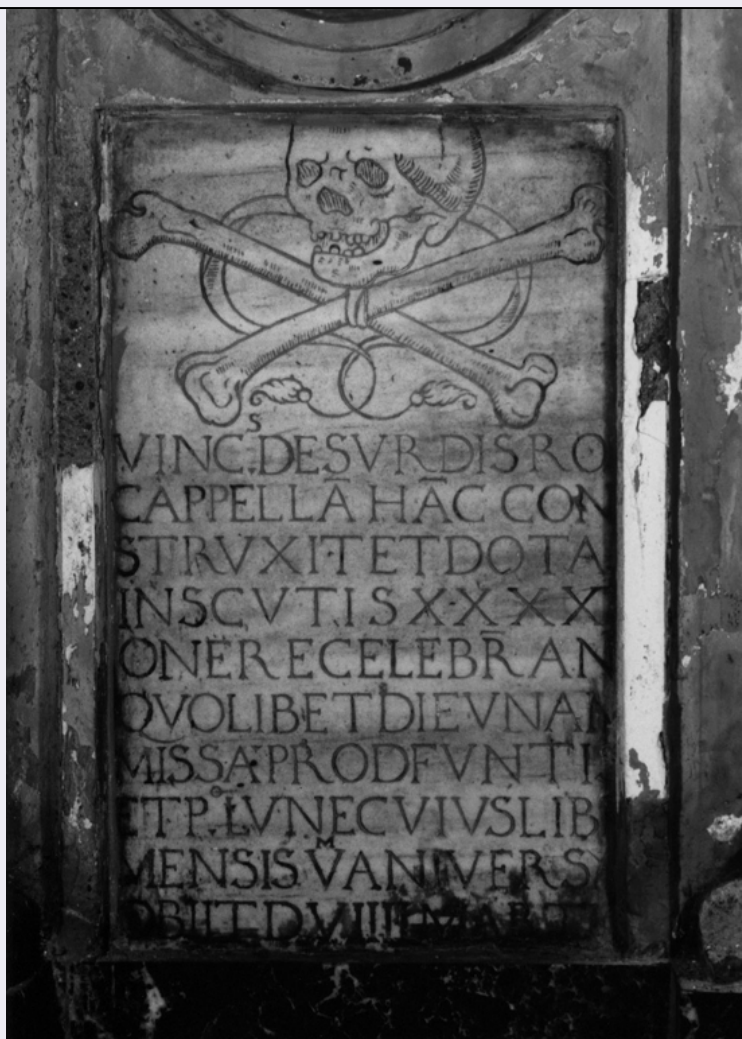 VINC.S DE SVRDIS RO
CAPPELLĀ HĀC CON
STRVXIT ET DOTA
IN SCVTIS XXXX
ONERE CELEBR̄AN
QVOLIBET DIE VNAM
MISSĀ PRO DFVNTIS
ET P.º LVNE CVIVSLIB
MENSIS VM ANIVERS
OBIIT D VIIII MARTI